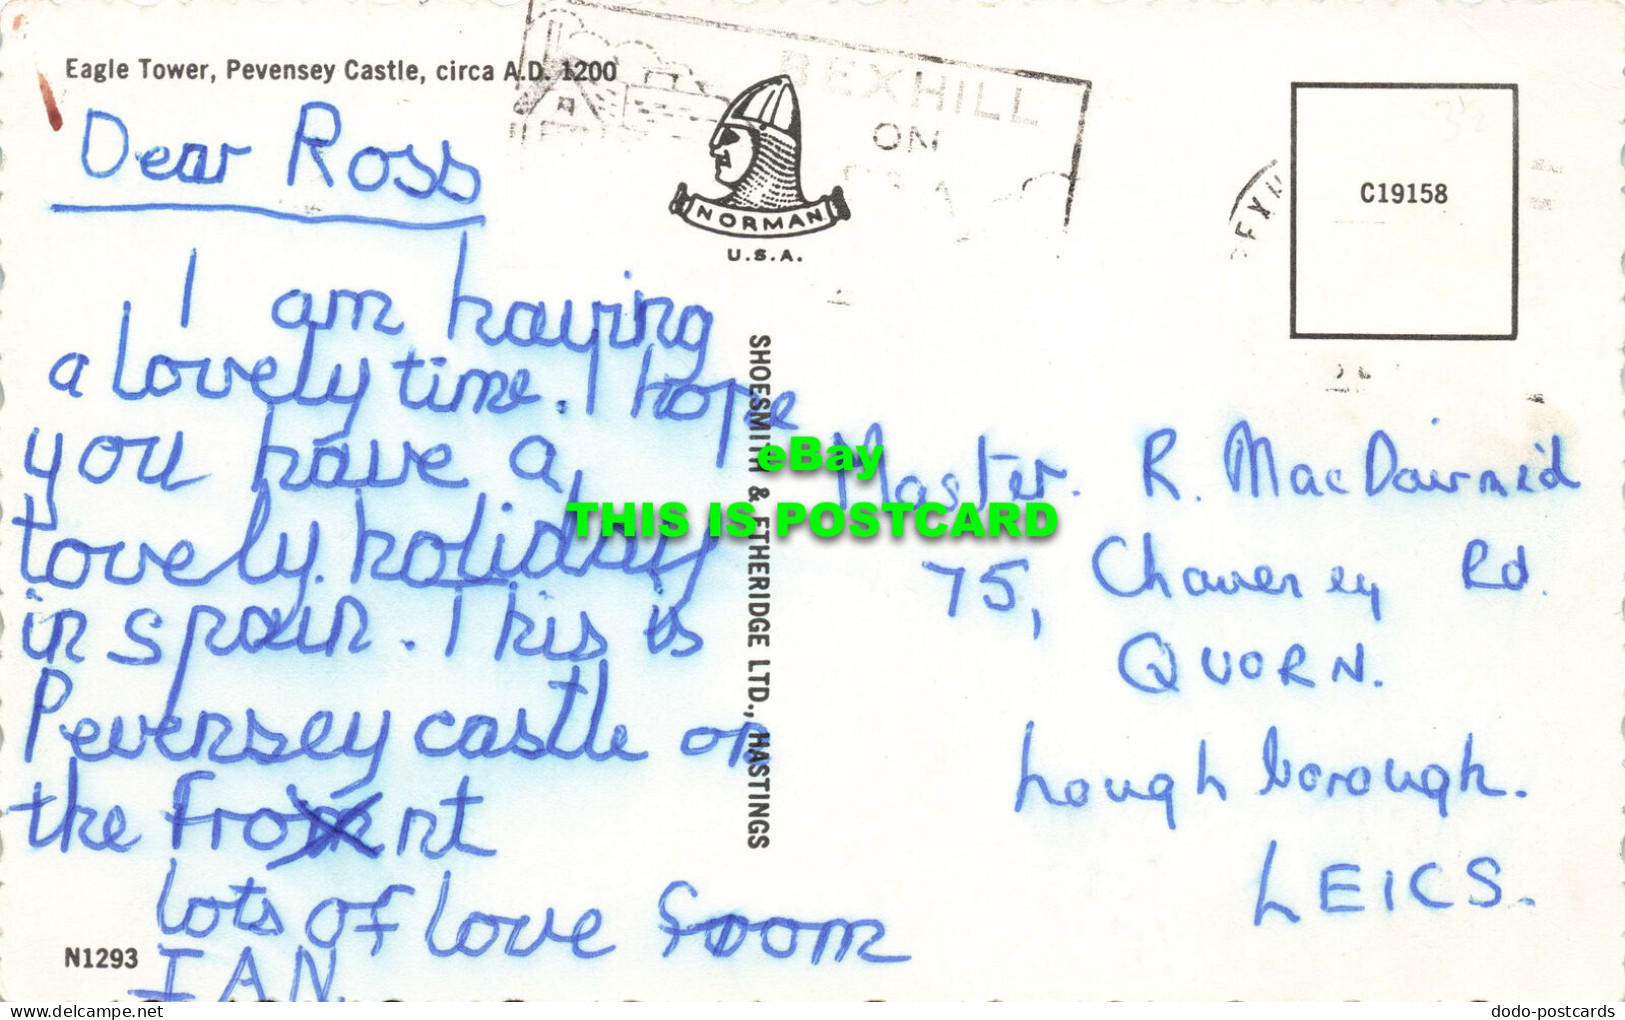 Eagle Tower, Pevensey Castle, circa A.D. 1200
BEXHILL
ON
NORMAN
U.S.A.
C19158
Dear Ross
I am having
a lovely time. I hope
you have a
lovely holiday
in spain. This is
Pevensey castle on
the front
lots of love froom
IAN.
N1293
SHOESMITH & ETHERIDGE LTD., HASTINGS
Master. R. MacDairmid
75, Chaveney Rd.
QUORN.
Loughborough.
LEICS.
eBay
THIS IS POSTCARD
www.delcampe.net
dodo-postcards